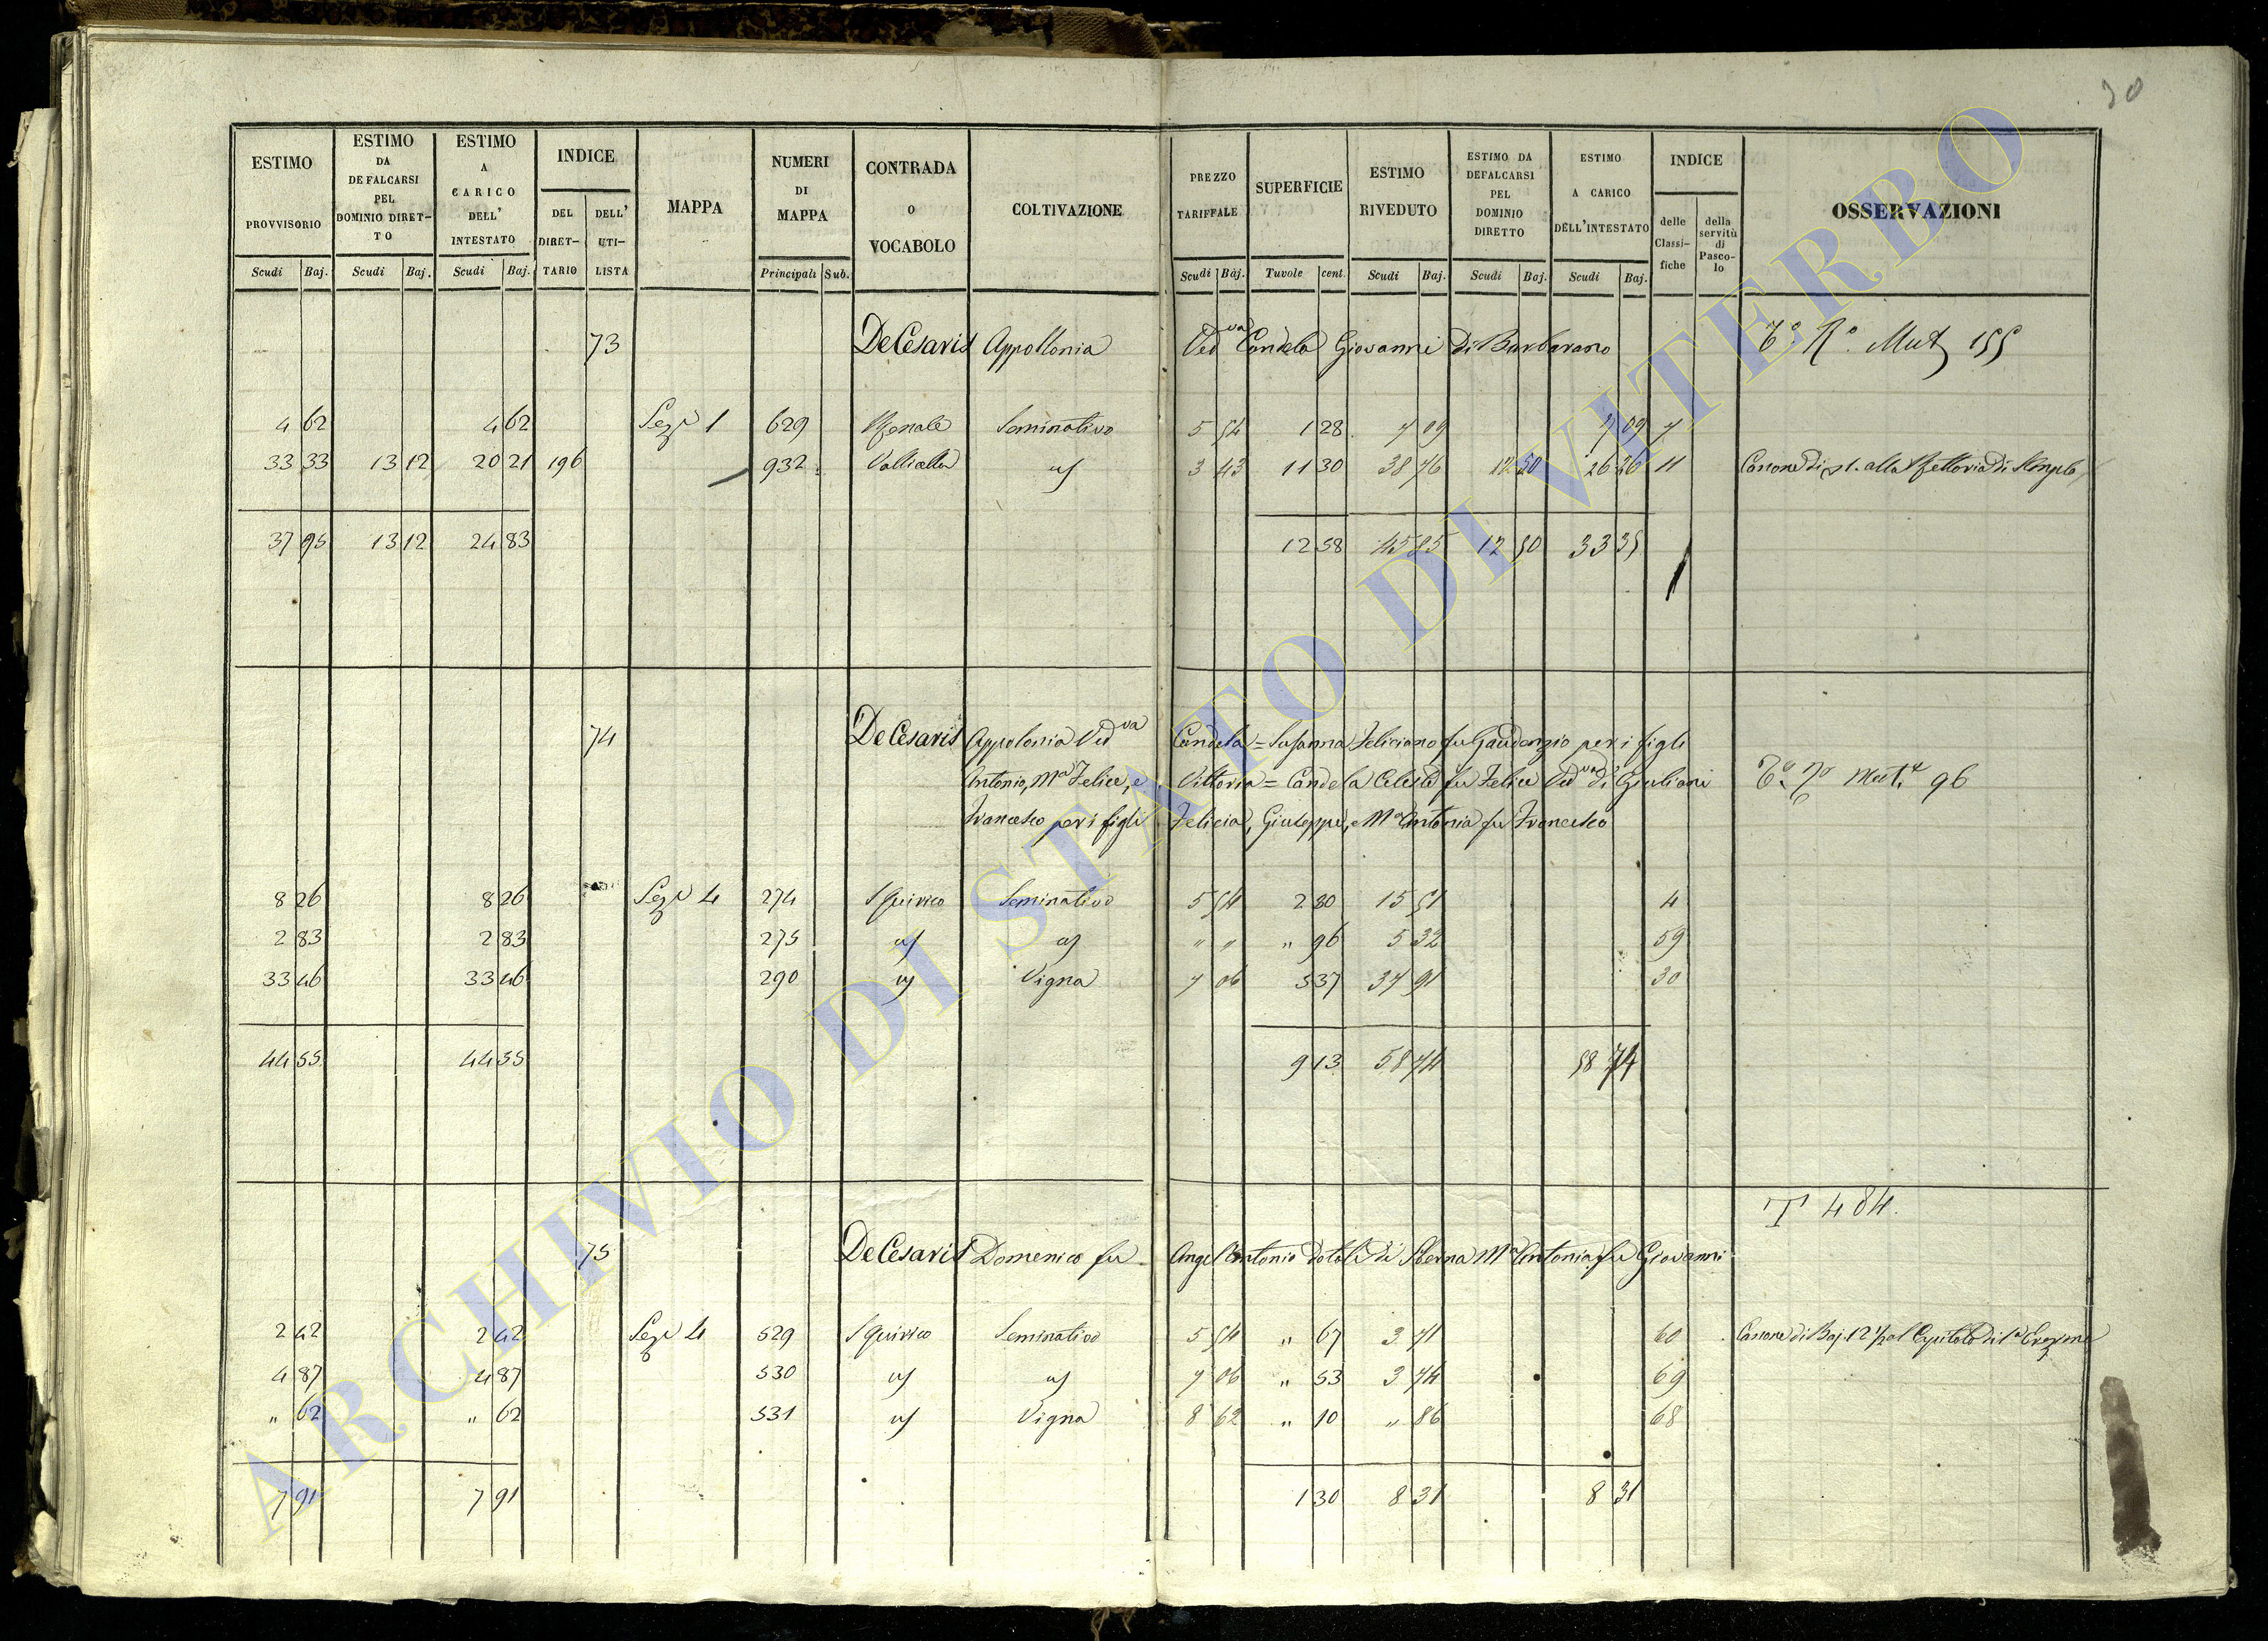 30
ESTIMO PROVVISORIO Scudi Baj.
ESTIMO DA DEFALCARSI PEL DOMINIO DIRET-TO Scudi Baj.
ESTIMO A CARICO DELL' INTESTATO Scudi Baj.
INDICE DEL DIRET-TARIO DELL' UTI-LISTA
MAPPA
NUMERI DI MAPPA Principali Sub.
CONTRADA O VOCABOLO
COLTIVAZIONE
PREZZO TARIFFALE Scudi Baj.
SUPERFICIE Tavole cent.
ESTIMO RIVEDUTO Scudi Baj.
ESTIMO DA DEFALCARSI PEL DOMINIO DIRETTO Scudi Baj.
ESTIMO A CARICO DELL'INTESTATO Scudi Baj.
INDICE delle Classi-fiche della servitù di Pasco-lo
OSSERVAZIONI
73 De Cesaris Appollonia Ved va Candela Giovanni di Barbarano Mut 155
4 62 4 62 Sez 1 629 Seminativo 5 54 1 28 7 09 7 09 7
33 33 13 12 20 21 196 932 3 43 11 30 38 76 12 50 26 26 11 Canone di
37 95 13 12 24 83 12 58 45 85 12 50 33 35
74 De Cesaris Appolonia Ved va Candela = Susanna Feliciano fu Gaudenzio per i figli
Antonio, Ma Felice, e Vittoria = Candela Celeste fu Felice Ved va di Giuliani Mut. 96
Francesco per i figli Felicia, Giuseppe, e Ma Antonia fu Francesco
8 26 8 26 Sez 4 274 S Quirico Seminativo 5 54 2 80 15 51 4
2 83 2 83 275 " " " 96 5 32 59
33 46 33 46 290 Vigna 7 06 5 37 37 91 30
44 55 44 55 9 13 58 74 58 74
T 484.
75 De Cesaris Domenico fu Angel'Antonio dotali di Sberna Ma Antonia fu Giovanni
2 42 2 42 Sez 4 529 S Quirico Seminativo 5 54 " 67 3 71 60 Canone di Baj. 12 1/2 al Capitolo di
4 87 4 87 530 7 06 " 53 3 74 69
" 62 " 62 531 Vigna 8 62 " 10 " 86 68
7 91 7 91 1 30 8 31 8 31
ARCHIVIO DI STATO DI VITERBO